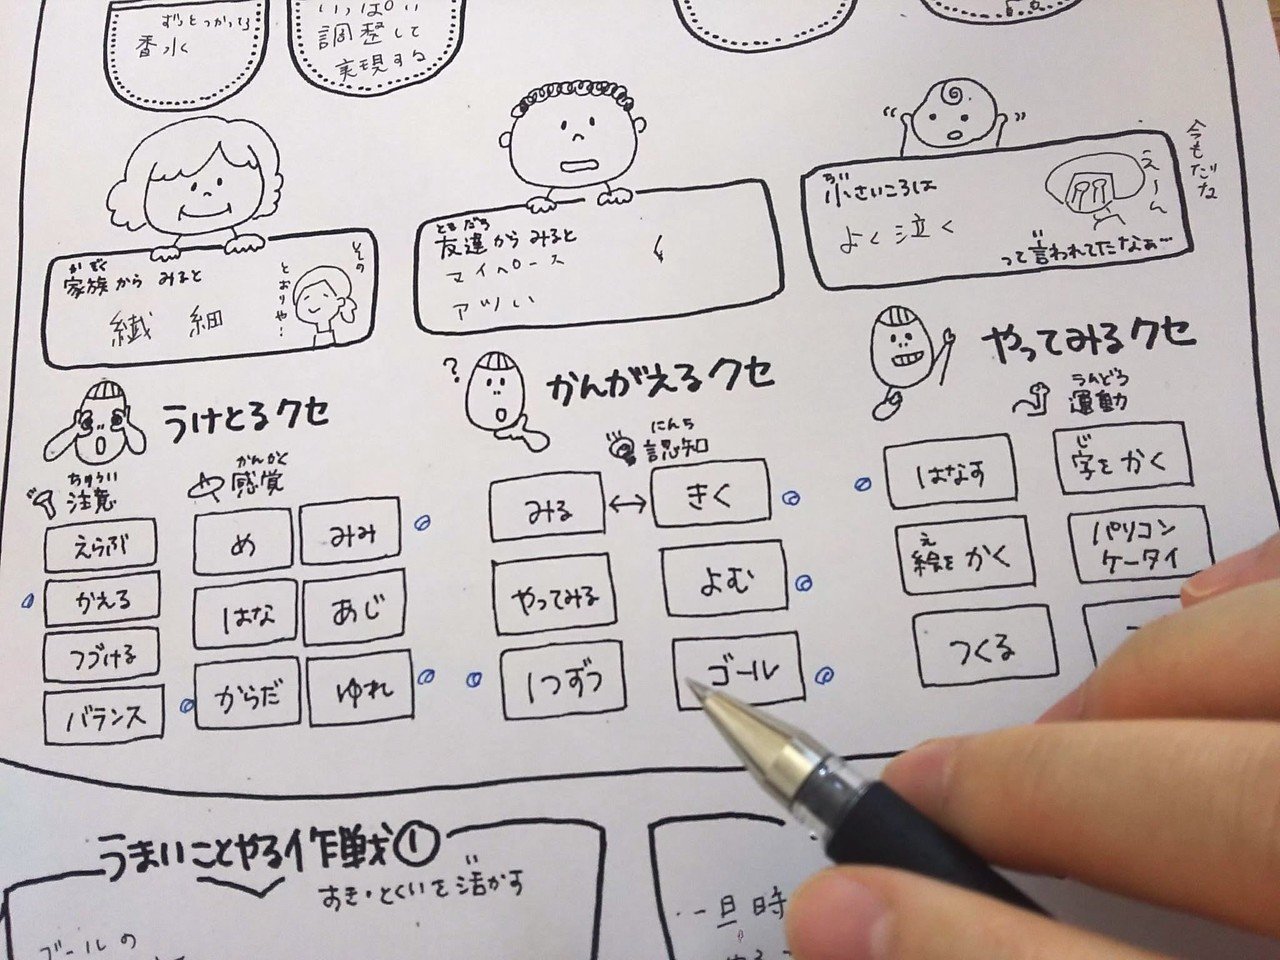 ずっとつかってる
香水
いっぱい
調整して
実現する
かぞく
家族から みると
繊細
その
とおりや…
ともだち
友達から みると
マイペース
アツい
ちい
小さいころは
よく泣く
えーん
って言われてたなぁ~
い
今もだな
うけとるクセ
ちゅうい
注意
えらぶ
かえる
つづける
バランス
かんかく
感覚
め
みみ
はな
あじ
からだ
ゆれ
?
かんがえるクセ
にんち
認知
みる
きく
やってみる
よむ
1つずつ
ゴール
やってみるクセ
うんどう
運動
はなす
じ
字をかく
え
絵をかく
パソコン
ケータイ
つくる
うまいことやる作戦①
すき・とくいを活かす
い
ゴールの
一旦時